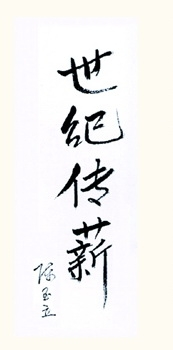 世纪传薪
陈玉立